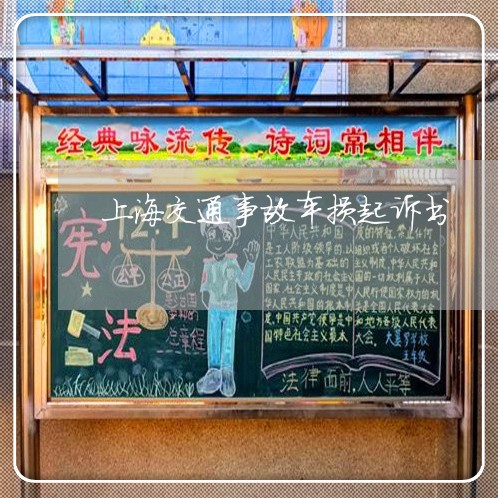 经典咏流传 诗词常相伴
上海交通事故车损起诉书
宪
法
公平
公正
总章程
中华人民共和国
是工人阶级领导的,以
工农联盟为基础的
人民民主专政的社会主义
国家,社会主义制度是中
华人民共和国的根本制
度,中国共产党领导是中
国特色社会主义最本
质的特征,禁止任何
组织或者个人破坏社会
主义制度,中华人民共和
国的一切权利属于人民,
人民行使国家权力的机
关是全国人民代表大会
和地方各级人民代表
大会。
学校
五年级
法律面前,人人平等